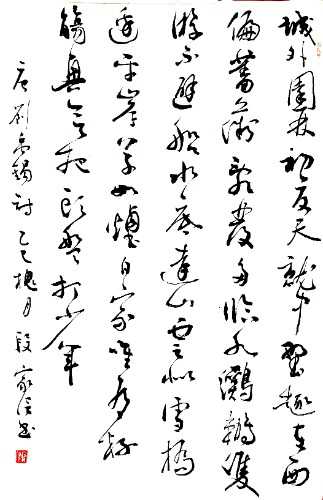 城外園林初夏天就中野趣在西
偏薔薇亂發多臨水鸂鶒雙
游不避船水底遠山雲似雪橋
邊平岸草如煙白家唯有杯
觴興欲把頭盤打少年
唐劉禹錫詩乙巳槐月段家書